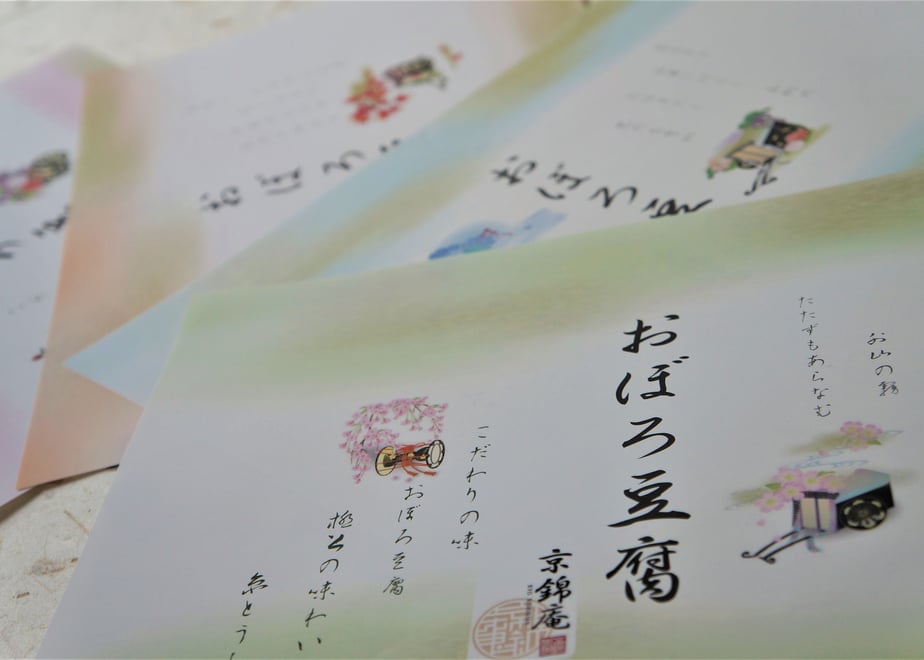 お山の霧
たたずもあらなむ
おぼろ豆腐
京錦庵
こだわりの味
おぼろ豆腐
極上の味わい
京とう
おぼろ豆
おぼろ